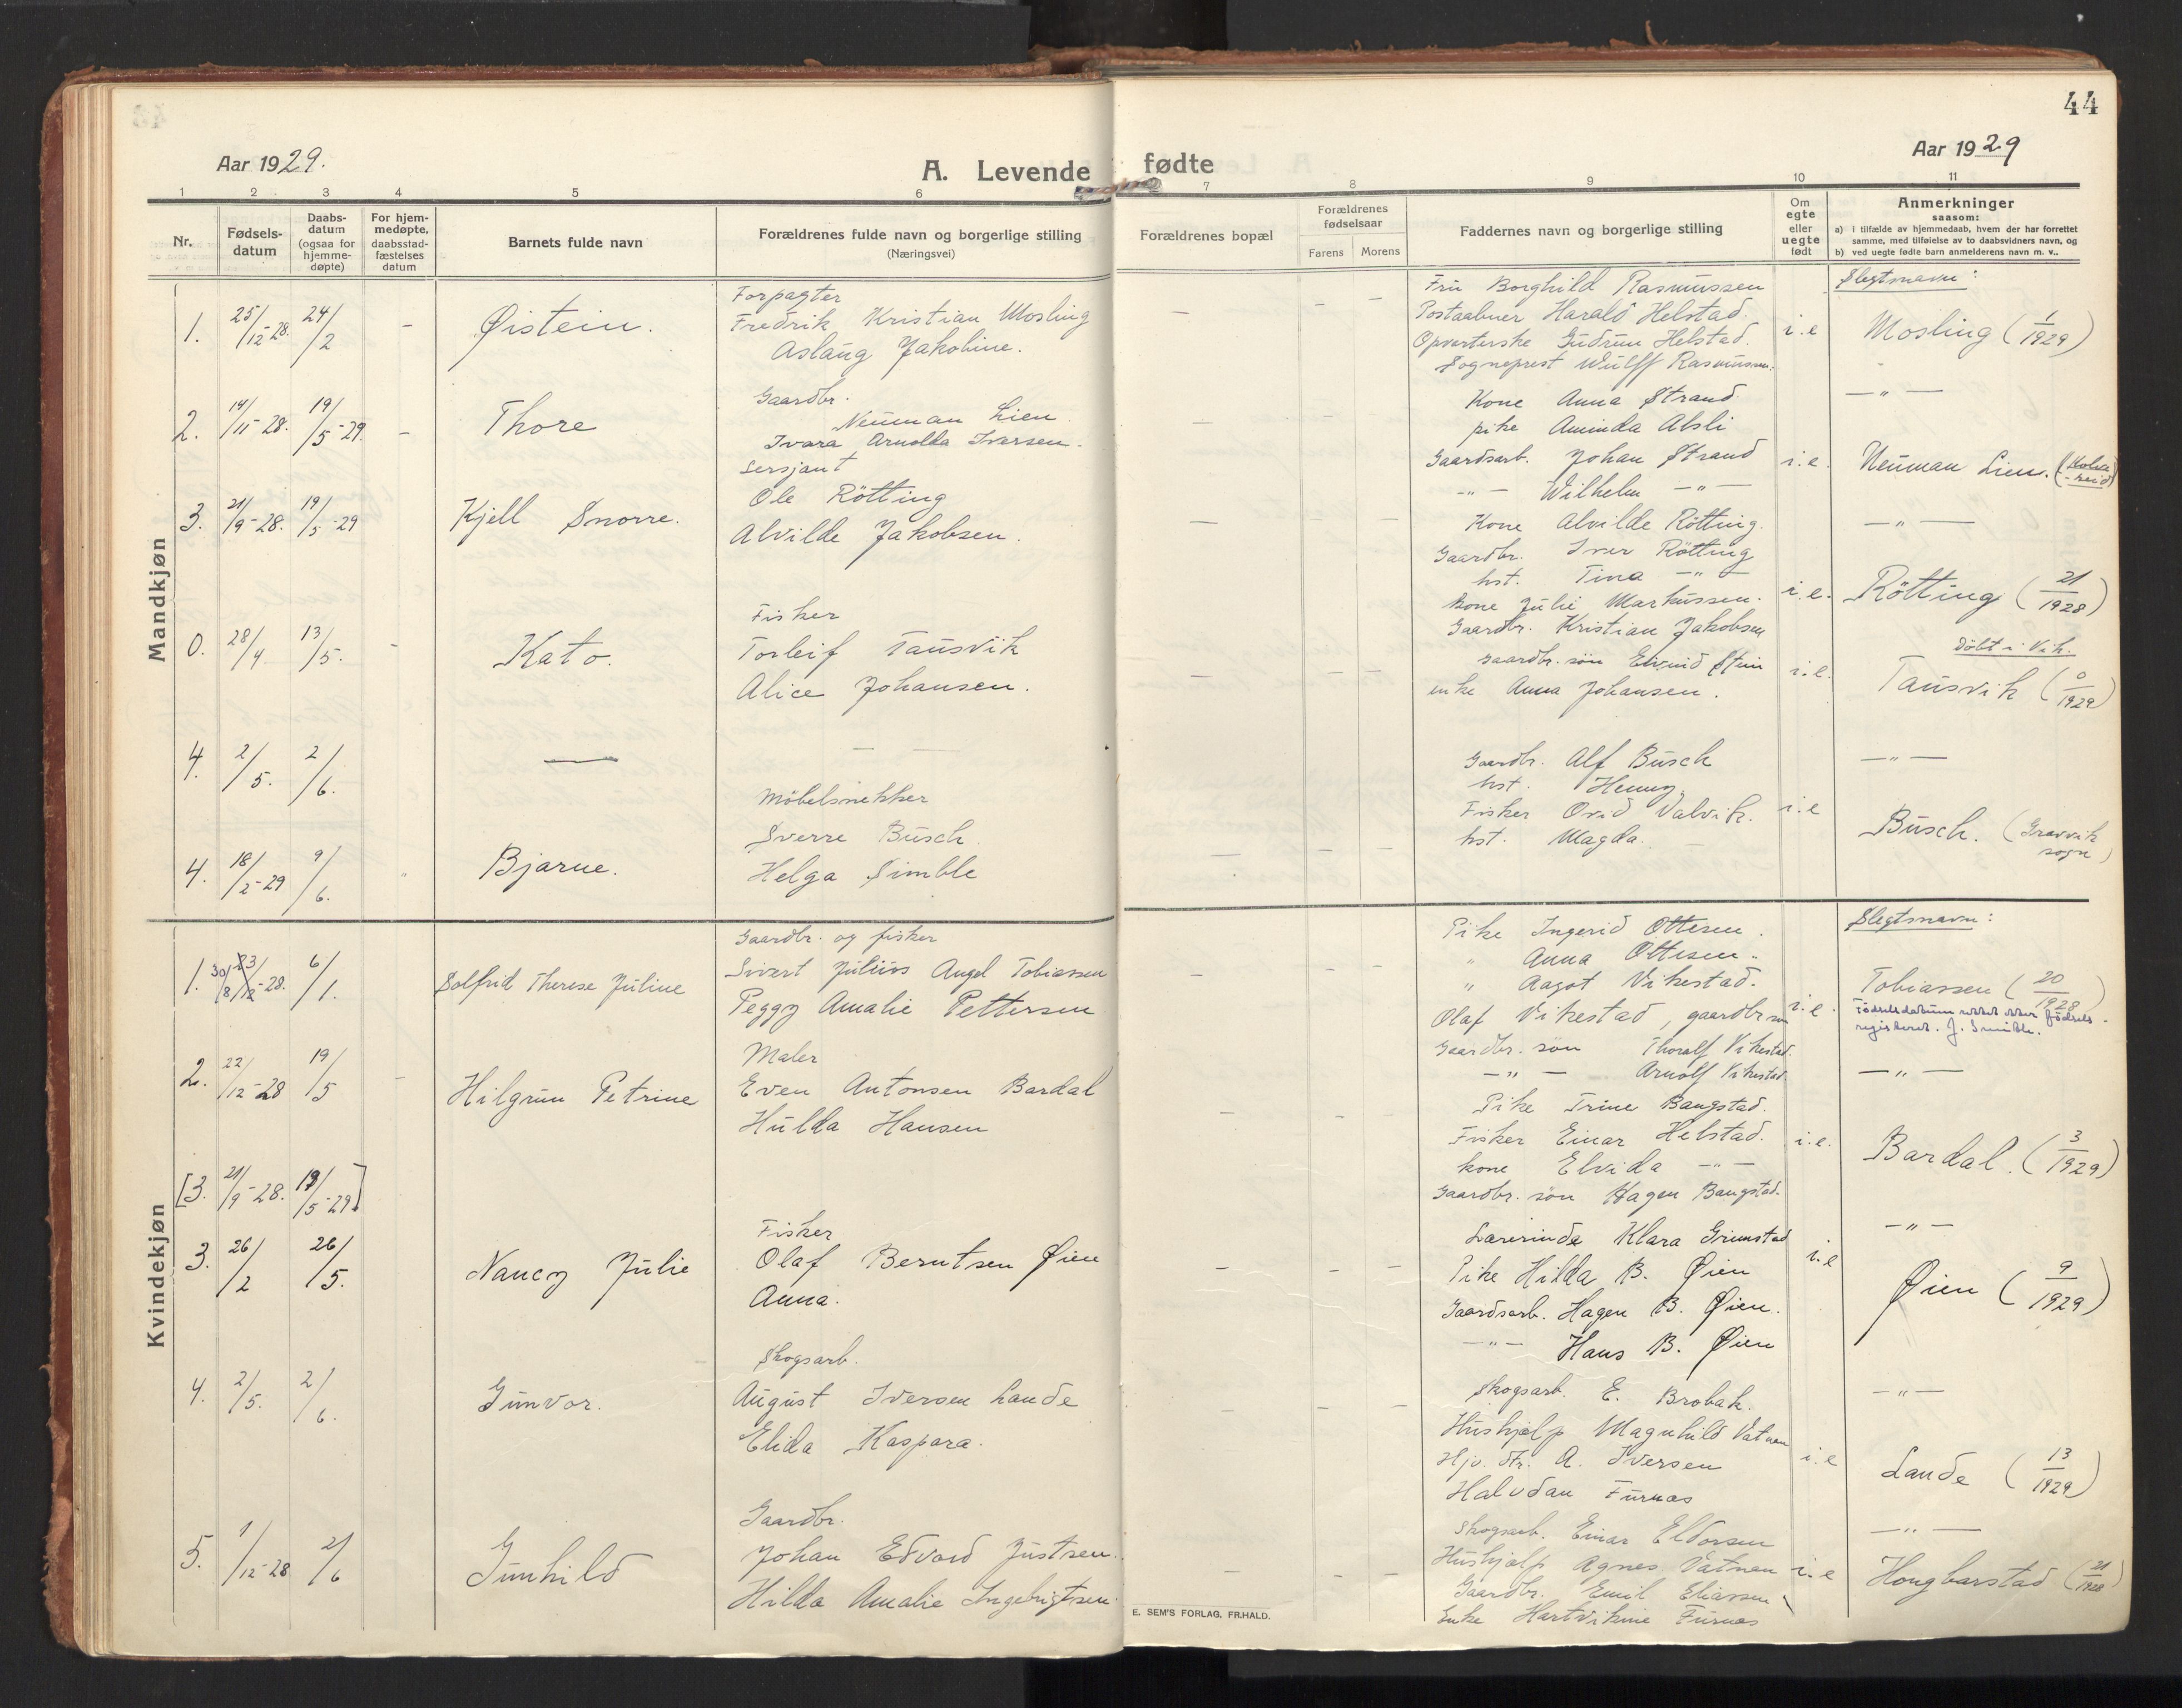 44
Aar 1929.
A. Levende fødte
Aar 1929
1 2 3 4 5 6 7 8 9 10 11
Nr.
Fødsels-
datum
Daabs-
datum
(ogsaa for
hjemme-
døpte)
For hjem-
medøpte,
daabsstad-
fæstelses
datum
Barnets fulde navn
Forældrenes fulde navn og borgerlige stilling
(Næringsvei)
Forældrenes bopæl
Forældrenes
fødselsaar
Farens Morens
Faddernes navn og borgerlige stilling
Om
egte
eller
uegte
født
Anmerkninger
saasom:
a) i tilfælde av hjemmedaab, hvem der har forrettet
samme, med tilføielse av to daabsvidners navn, og
b) ved uegte fødte barn anmelderens navn m. v..
Mandkjøn
Slegtsnavn:
1. 25/12-28. 24/2 - Øistein.
Forpagter
Fredrik Kristian Mosling
Aslaug Jakobine.
Fru Borghild Rasmussen
Postaabner Harald Helstad.
Opvarterske Gudrun Helstad.
Sogneprest Wulff Rasmussen.
i.e
Mosling (1/1929)
2. 14/11-28. 19/5-29. - Thore
Gaardbr.
Neuman Lien
Ivara Arnolda Iversen.
Kone Anna Strand.
pike Aminda Absli
Gaardsarb. Johan Strand
-"- Wilhelm -"-
i.e.
-"-
Neuman Lien. (Kolvereid)
3. 21/9-28. 19/5-29 Kjell Snorre.
Sersjant
Ole Rötting
Alvilde Jakobsen.
Kone Alvilde Rötting.
Gaardbr. Iver Rötting
hst. Tina -"-
Kone Julie Markussen.
Gaardbr. Kristian Jakobsen
i.e.
-"-
Rötting (21/1928)
0. 28/4. 13/5. - Kato.
Fisker
Torleif Tausvik
Alice Johansen.
Gaardbr. søn Eivind Stein
enke Anna Johansen.
i.e.
Döbt i Vik.
Tausvik (0/1929)
4. 2/5. 2/6. — — —
4. 18/2-29 9/6. " Bjarne.
Möbelsnekker
Sverre Busch
Helga Simble
Gaardbr. Alf Busch
hst. Henny
Fisker Ovid Valvik.
hst. Magda. -
i.e
-"-
Busch. (Gravvik
sogn)
Kvindekjøn
Slegtsnavn:
1. 30/8 23/12-28. 6/1. Solfrid Therese Juline
Gaardbr. og fisker
Sivert Julius Angel Tobiassen
Peggy Amalie Pettersen
Pike Ingerid Ottesen.
" Anna Ottesen.
" Aagot Vikestad.
Olaf Vikestad, gaardbr søn
Gaardbr. søn Thoralf Vikestad.
-"- Arnolf Vikestad
i.e.
Tobiassen (20/1928)
Födselsdatum rettet etter födsels-
registeret. J. Smible.
2. 22/12-28 19/5 - Hilgrun Petrine
Maler
Even Antonsen Bardal
Hulda Hansen
Pike Trine Bangstad.
Fisker Einar Helstad.
kone Elvida -"-
Gaardbr. søn Hagen Bangstad.
i.e.
-"-
Bardal. (3/1929)
[3. 21/9-28. 19/5-29]
3. 26/2 26/5. Nancy Julie
Fisker
Olaf Berntsen Øien
Anna.
Lærerinde Klara Grimstad
Pike Hilda B. Øien
Gaardsarb. Hagen B. Øien.
-"- Hans B. Øien
i.e
-"-
Øien (9/1929)
4. 2/5. 2/6. Gunvor.
Skogsarb.
August Iversen Lande
Elida Kaspara.
Skogsarb. E. Brobak.
Hushjælp Magnhild Vatnan
Hjv. dtr. A. Iversen
Halvdan Furnæs
i.e
-"-
Lande (13/1929)
5. 1/12-28 2/6 Gunhild
Gaardbr.
Johan Edvard Justsen.
Hilda Amalie Ingebrigtsen.
Skogsarb. Einar Eldorsen
Hushjælp Agnes Vatnan
Gaardbr. Emil Eliassen
Enke Hartvikine Furnæs
i.e
-"-
Hongbarstad (21/1928)
E. SEM'S FORLAG, FR.HALD.